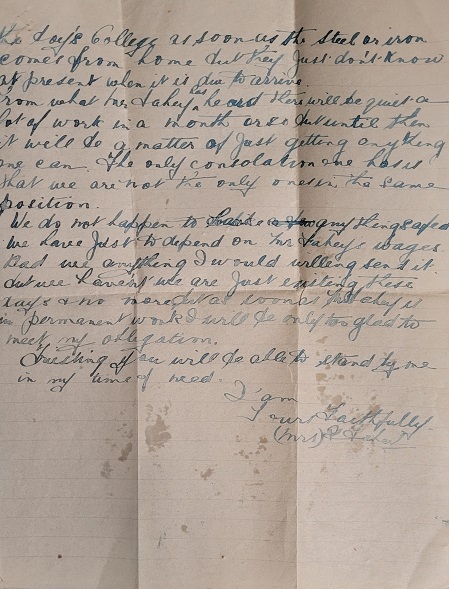 the Boy's College as soon as the steel or iron
comes from home but they just don't know
at present when it is due to arrive.
From what Mr Fahey has heard there will be quiet a
lot of work in a month or so but until then
it will be a matter of just getting anything
one can. The only consolation one has is
that we are not the only ones in the same
position.
We do not happen to have a anything saved
we have just to depend on Mr Fahey's wages.
Had we anything I would willing send it
but we haven't we are just existing these
days & no more but as soon as Mr Fahey is
in permanent work I will be only too glad to
meet my obligation.
Trusting you will be able to stand by me
in my time of need.
I am
Yours Faithfully
(Mrs) Fahey